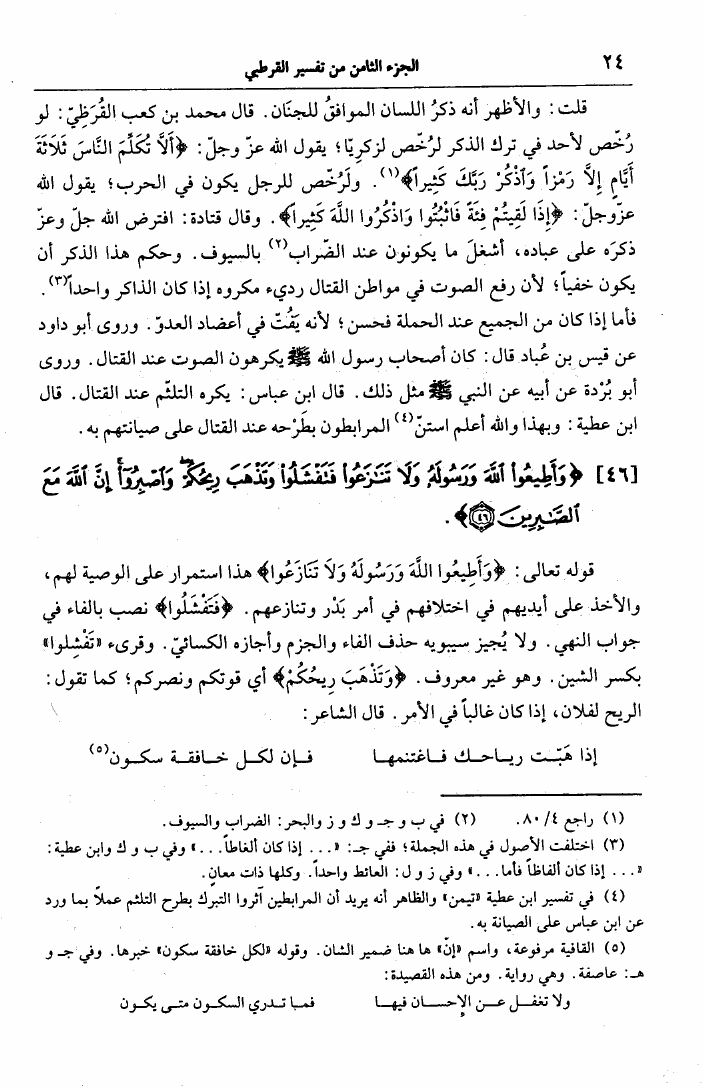 ٢٤ الجزء الثامن من تفسير القرطبي
قلت: والأظهر أنه ذكرُ اللسان الموافقُ للجنَان. قال محمد بن كعب القُرَظِيّ: لو
رُخّص لأحد في ترك الذكر لرُخّص لزكريّا؛ يقول الله عزّ وجلّ: ﴿أَلاَّ تُكَلِّمَ النَّاسَ ثَلَاثَةَ
أَيَّامٍ إِلاَّ رَمْزاً وَٱذْكُرْ رَبَّكَ كَثِيراً﴾(١). ولَرُخّص للرجل يكون في الحرب؛ يقول الله
عزّوجلّ: ﴿إِذَا لَقِيتُمْ فِئَةً فَاثْبُتُوا وَاذْكُرُوا اللَّهَ كَثِيراً﴾. وقال قتادة: افترض الله جلّ وعزّ
ذكرَه على عباده، أشغلَ ما يكونون عند الضّراب(٢) بالسيوف. وحكم هذا الذكر أن
يكون خفياً؛ لأن رفع الصوت في مواطن القتال رديء مكروه إذا كان الذاكر واحداً(٣).
فأما إذا كان من الجميع عند الحملة فحسن؛ لأنه يَفُتّ في أعضاد العدوّ. وروى أبو داود
عن قيس بن عُباد قال: كان أصحاب رسول الله ﷺ يكرهون الصوت عند القتال. وروى
أبو بُرْدة عن أبيه عن النبي ﷺ مثل ذلك. قال ابن عباس: يكره التلثّم عند القتال. قال
ابن عطية: وبهذا والله أعلم استنّ(٤) المرابطون بطَرْحه عند القتال على صيانتهم به.
[٤٦] ﴿وَأَطِيعُوا۟ ٱللَّهَ وَرَسُولَهُۥ وَلَا تَنَـٰزَعُوا۟ فَتَفْشَلُوا۟ وَتَذْهَبَ رِيحُكُمْ ۖ وَٱصْبِرُوٓا۟ ۚ إِنَّ ٱللَّهَ مَعَ
ٱلصَّـٰبِرِينَ ٤٦﴾.
قوله تعالى: ﴿وَأَطِيعُوا اللَّهَ وَرَسُولَهُ وَلاَ تَنَازَعُوا﴾ هذا استمرار على الوصية لهم،
والأخذ على أيديهم في اختلافهم في أمر بَدْر وتنازعهم. ﴿فَتَفْشَلُوا﴾ نصب بالفاء في
جواب النهي. ولا يُجيز سيبويه حذف الفاء والجزم وأجازه الكسائيّ. وقرىء «تَفْشِلوا»
بكسر الشين. وهو غير معروف. ﴿وَتَذْهَبَ رِيحُكُمْ﴾ أي قوتكم ونصركم؛ كما تقول:
الريح لفلان، إذا كان غالباً في الأمر. قال الشاعر:
إذا هَبّت رياحك فاغتنمها فإن لكل خافقة سكون(٥)
(١) راجع ٨٠/٤. (٢) في ب و جـ و ك و ز والبحر: الضراب والسيوف.
(٣) اختلفت الأصول في هذه الجملة؛ ففي جـ: «... إذا كان ألغاطاً...» وفي ب و ك وابن عطية:
«... إذا كان ألفاظاً فأما...» وفي ز و ل: العائط واحداً. وكلها ذات معانٍ.
(٤) في تفسير ابن عطية «تيمن» والظاهر أنه يريد أن المرابطين آثروا التبرك بطرح التلثم عملاً بما ورد
عن ابن عباس على الصيانة به.
(٥) القافية مرفوعة، واسم «إنّ» ها هنا ضمير الشان. وقوله «لكل خافقة سكون» خبرها. وفي جـ و
هـ: عاصفة. وهي رواية. ومن هذه القصيدة:
ولا تغفل عن الإحسان فيها فما تدري السكون متى يكون